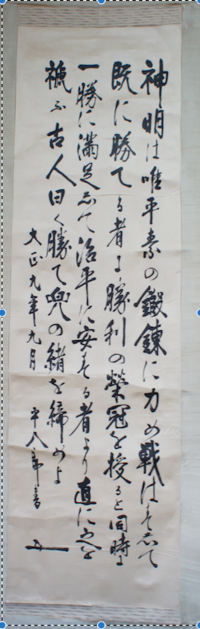 神明は唯平素の鍛錬に力め戦はずして
既に勝てる者に勝利の栄冠を授ると同時に
一勝に満足して治平に安ずる者より直に之を
褫ふ古人曰く勝て兜の緒を締めよ
大正九年九月 平八郎書